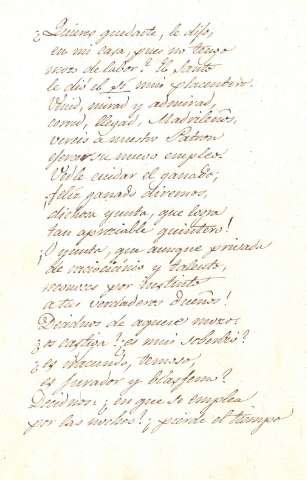 ¿Quieres quedarte, le dijo,
en mi casa, pues no tengo
mozo de labor? El Santo
le dió el sí mui placentero.
Venid, mirad y admirad,
corred, llegad, Madrileños,
vereis a nuestro Patron
ejercer su nuevo empleo.
Vedle cuidar el ganado;
¡feliz ganado diremos,
dichosa yunta, que logra
tan apreciable quintero!
¡O yunta, que aunque privada
de raciocinio y talento,
reconoces por instinto
a tus verdaderos dueños!
Decidnos de aquese mozo,
¿os castiga? ¿es mui soberbio?
¿es iracundo, temoso,
es jurador y blasfemo?
Decidnos: ¿en que se emplea
por las noches? ¿pierde el tiempo